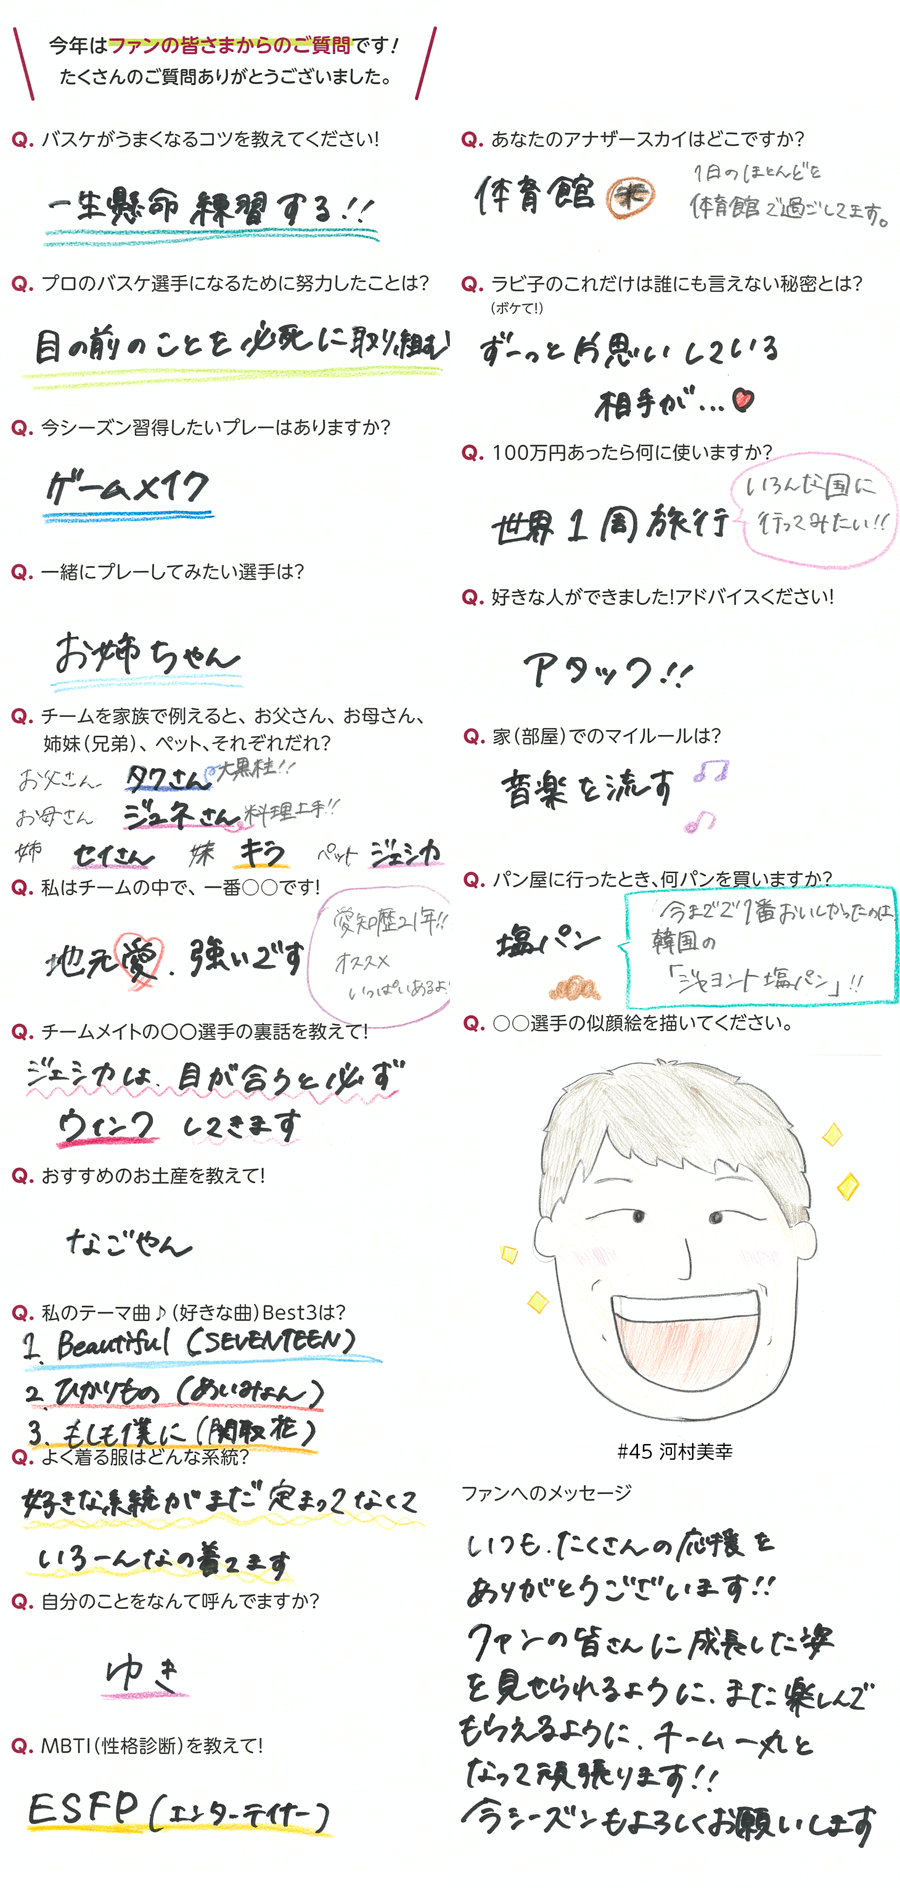 今年はファンの皆さまからのご質問です!
たくさんのご質問ありがとうございました。
Q. バスケがうまくなるコツを教えてください!
一生懸命 練習する!!
Q. プロのバスケ選手になるために努力したことは?
目の前のことを必死に取り組む
Q. 今シーズン習得したいプレーはありますか?
ゲームメイク
Q. 一緒にプレーしてみたい選手は?
お姉ちゃん
Q. チームを家族で例えると、お父さん、お母さん、
姉妹(兄弟)、ペット、それぞれだれ?
お父さん タクさん 大黒柱!!
お母さん ジュネさん 料理上手!!
姉 セイさん 妹 キラ ペット ジェシカ
Q. 私はチームの中で、一番○○です!
地元愛、強いです
愛知歴21年!!
オススメ
いっぱいあるよ!
Q. チームメイトの〇〇選手の裏話を教えて!
ジェシカは、目が合うと必ず
ウインク してきます
Q. おすすめのお土産を教えて!
なごやん
Q. 私のテーマ曲♪(好きな曲)Best3は?
1. Beautiful (SEVENTEEN)
2. ひかりもの (あいみょん)
3. もしも僕に (関取花)
Q. よく着る服はどんな系統?
好きな系統がまだ定まってなくて
いろーんなの着てます
Q. 自分のことをなんて呼んでますか?
ゆき
Q. MBTI(性格診断)を教えて!
ESFP (エンターテイナー)
Q. あなたのアナザースカイはどこですか?
体育館
1日のほとんどを
体育館で過ごしてます。
Q. ラビ子のこれだけは誰にも言えない秘密とは?
(ボケて!)
ずーっと片思いしている
相手が…
Q. 100万円あったら何に使いますか?
世界1周旅行
いろんな国に
行ってみたい!!
Q. 好きな人ができました!アドバイスください!
アタック!!
Q. 家(部屋)でのマイルールは?
音楽を流す
Q. パン屋に行ったとき、何パンを買いますか?
塩パン
今までで1番おいしかったのは
韓国の
「ジャヨンド塩パン」!!
Q. ○○選手の似顔絵を描いてください。
#45 河村美幸
ファンへのメッセージ
いつも、たくさんの応援を
ありがとうございます!!
ファンの皆さんに成長した姿
を見せられるように、また楽しんで
もらえるように、チーム一丸と
なって頑張ります!!
今シーズンもよろしくお願いします